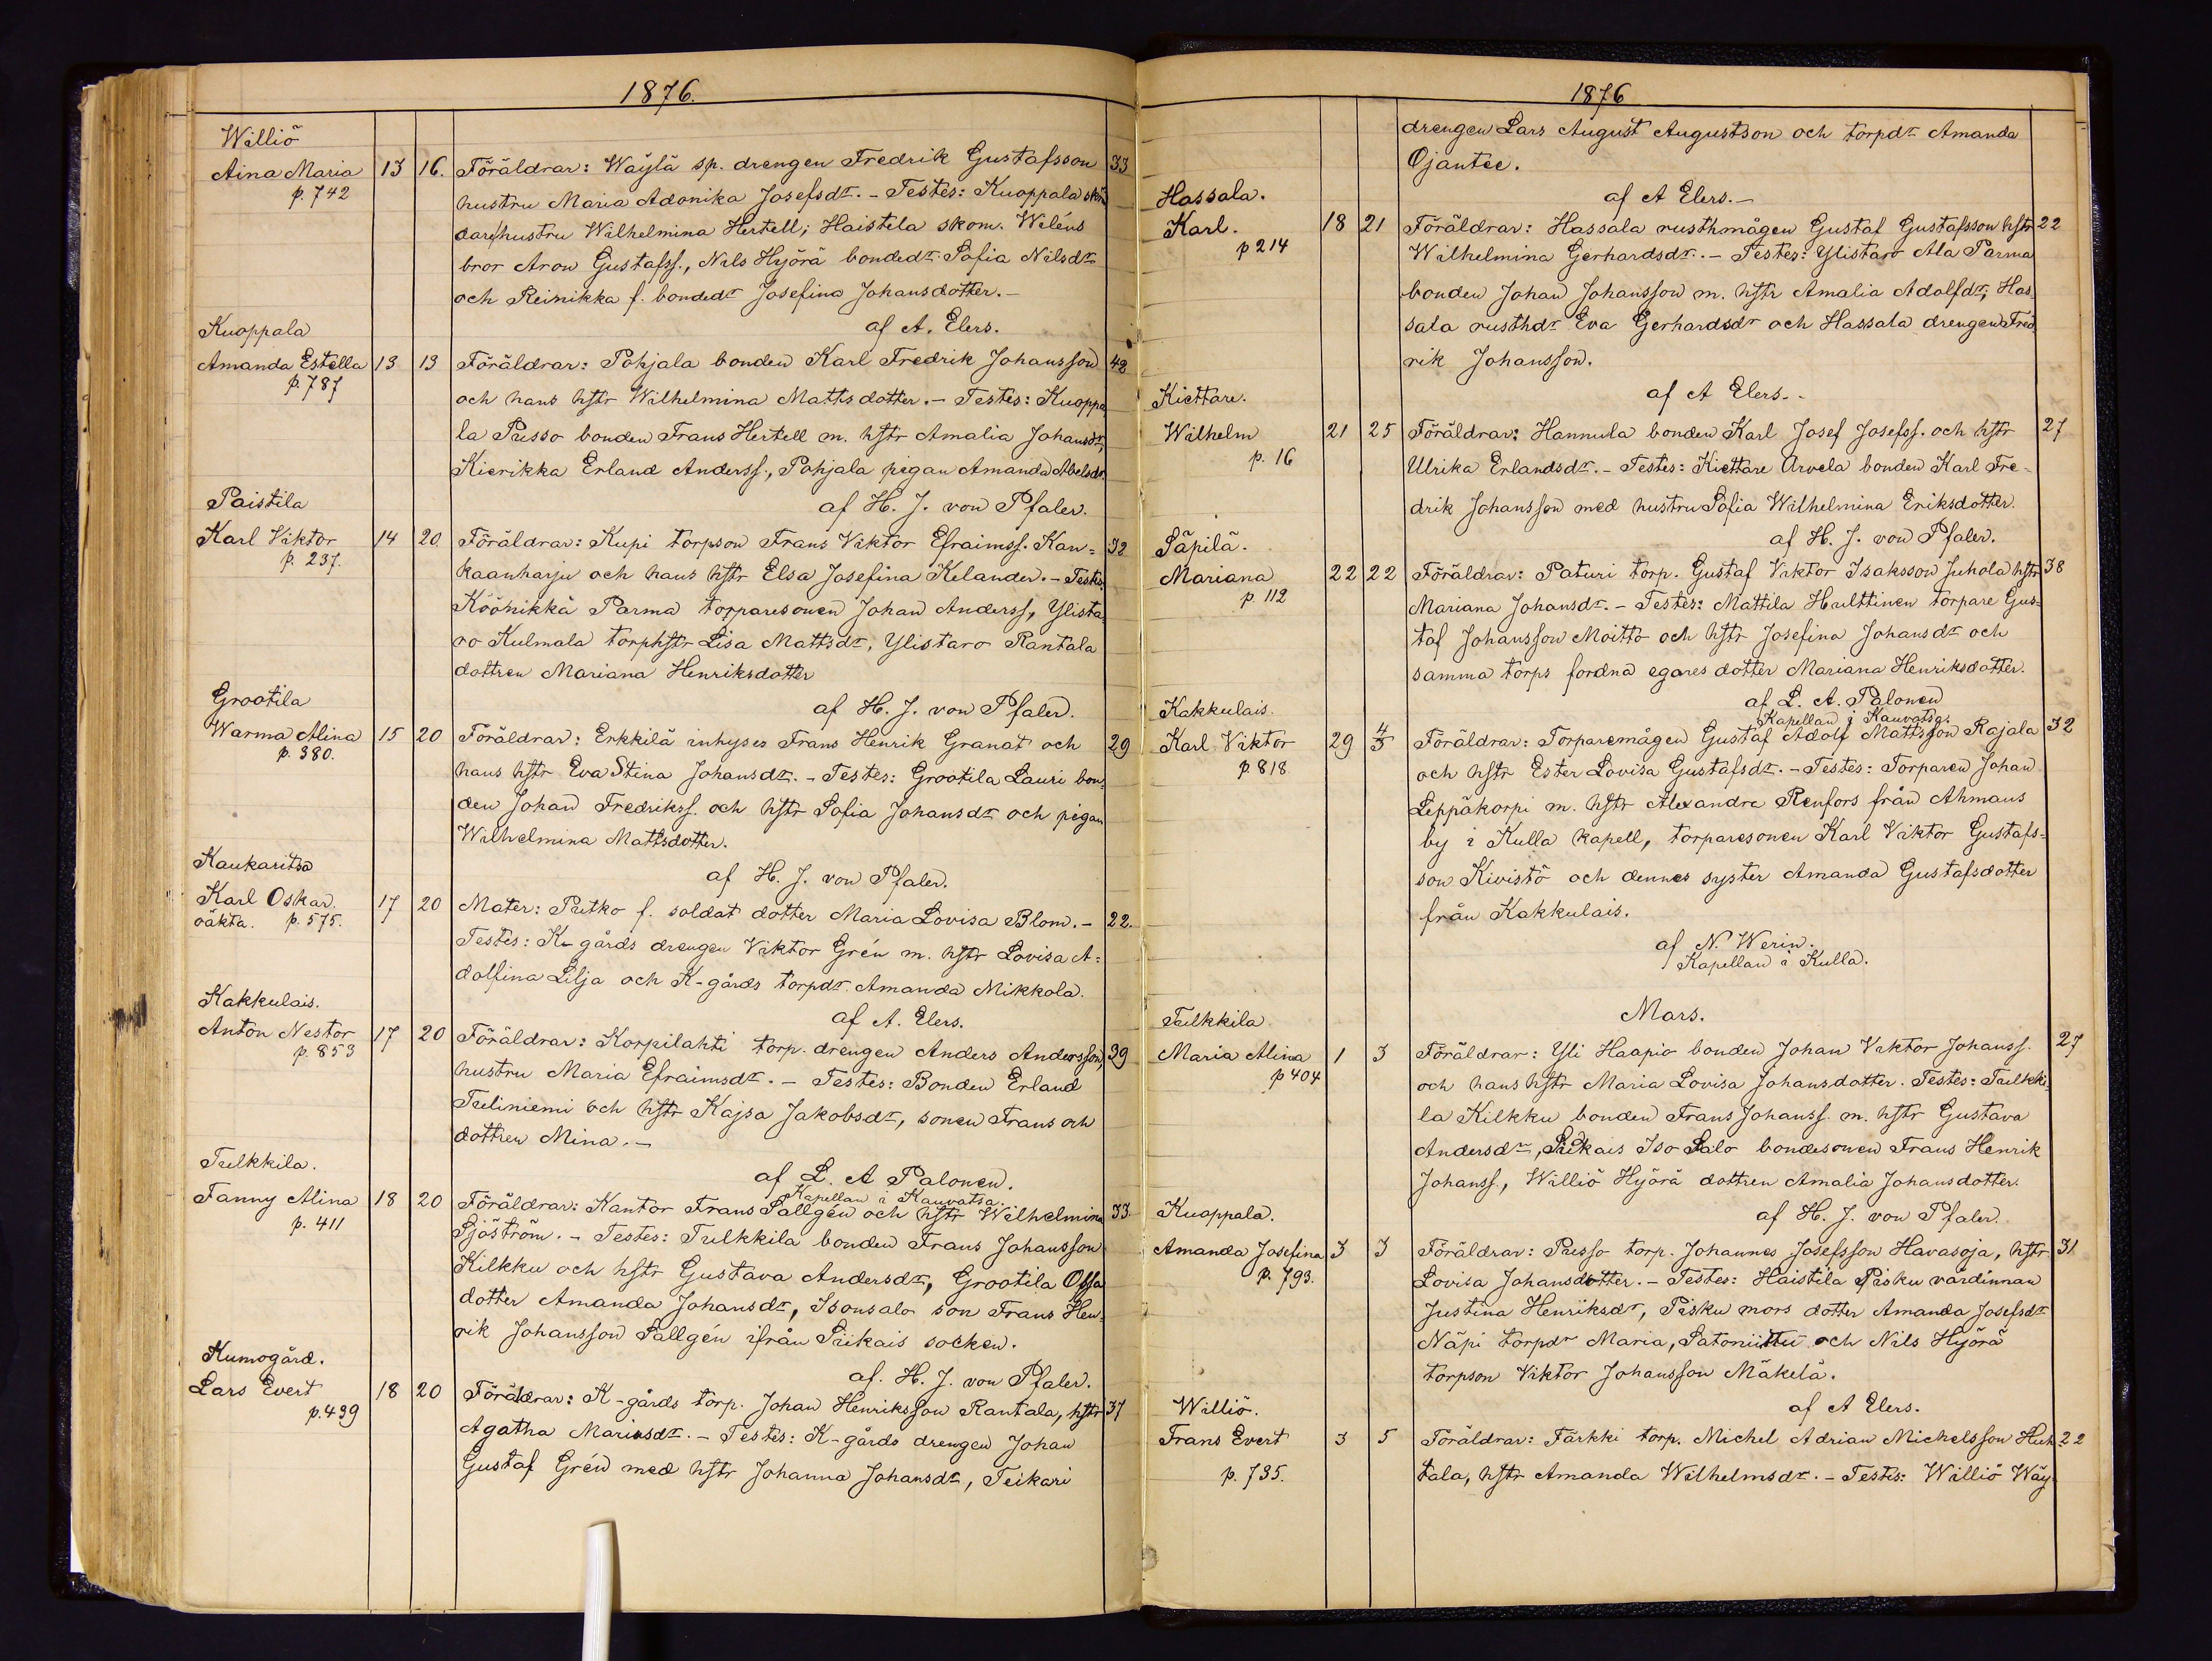 1876.
Williö
Aina Maria 13 16. Föräldrar: Wäylä sp. drengen Fredrik Gustafsson 33
p. 742 hustru Maria Adonika Josefsdr. - Testes: Kuoppala skräd
darehustru Wilhelmina Hertell; Haistila skom. Weléns
bror Aron Gustafss., Nils Hyörä bondedr Sofia Nilsdr
och Reinikka f. bondedr Josefina Johansdotter. -
Kuoppala af A. Elers.
Amanda Estella 13 13 Föräldrar: Pohjala bonden Karl Fredrik Johansson 42
p. 787 och hans hstr Wilhelmina Mattsdotter. - Testes: Kuoppa
la Pusso bonden Frans Hertell m. hstr Amalia Johansdr,
Kierikka Erland Anderss., Pohjala pigan Amanda Abelsdr.
Paistila af H. J. von Pfaler.
Karl Viktor 14 20 Föräldrar: Kupi torpson Frans Viktor Efraimss. Kan= 32
p. 237. kaanharju och hans hstr Elsa Josefina Kelander. - Testes:
Köönikkä Parma torparesonen Johan Anderss, Ylista
ro Kulmala torphstr Lisa Mattsdr, Ylistaro Rantala
dottren Mariana Henriksdotter
Grootila af H. J. von Pfaler.
Warma Alina 15 20 Föräldrar: Erkkilä inhyses Frans Henrik Granat och 29
p. 380. hans hstr Eva Stina Johansdr. - Testes: Grootila Lauri bon
den Johan Fredrikss. och hstr Sofia Johansdr och pigan
Wilhelmina Mattsdotter.
Kaukaritsa af H. J. von Pfaler.
Karl Oskar. 17 20 Mater: Putko f. soldat dotter Maria Lovisa Blom. - 22.
oäkta. p. 575. Testes: K-gårds drengen Viktor Grén m. hstr Lovisa A=
dolfina Lilja och K-gårds torpdr. Amanda Mikkola.
Kakkulais. af A. Elers.
Anton Nestor 17 20 Föräldrar: Korpilahti torp. drengen Anders Andersson, 39
p. 853 hustru Maria Efraimsdr. - Testes: Bonden Erland
Tuliniemi och hstr Kajsa Jakobsdr, sonen Frans och
dottren Mina. -
Tulkkila. af L. A Palonen.
Kapellan i Kauvatsa.
Fanny Alina 18 20 Föräldrar: Kantor Frans Sallgén och hstr Wilhelmina 33.
p. 411 Sjöström. - Testes: Tulkkila bonden Frans Johansson
Kilkku och hstr Gustava Andersdr, Grootila Ossa
dotter Amanda Johansdr, Isonsalo son Frans Hen
rik Johansson Sallgén ifrån Siikais socken.
Kumogård. af. H. J. von Pfaler.
Lars Evert 18 20 Föräldrar: K-gårds torp. Johan Henriksson Rantala, hstr 37
p. 439 Agatha Mariasdr. - Testes: K-gårds drengen Johan
Gustaf Grén med hstr Johanna Johansdr, Teikari
1876
drengen Lars August Augustson och torpdr Amanda
Ojantee.
Hassala. af A Elers. -
Karl. 18 21 Föräldrar: Hassala rusthmågen Gustaf Gustafsson hstr 22
p 214 Wilhelmina Gerhardsdr. - Testes: Ylistaro Ala Parma
bonden Johan Johansson m. hstr Amalia Adolfdr, Has
sala rusthdr Eva Gerhardsdr och Hassala drengen Fred
rik Johansson.
Kiettare. af A Elers. -
Wilhelm 21 25 Föräldrar: Hannula bonden Karl Josef Josefss. och hstr 27
p. 16 Ulrika Erlandsdr. - Testes: Kiettare Arvela bonden Karl Fre-
drik Johansson med hustru Sofia Wilhelmina Eriksdotter.
Säpilä. af H. J. von Pfaler.
Mariana 22 22 Föräldrar: Paturi torp. Gustaf Viktor Isaksson Juhola hstr 38
p. 112 Mariana Johansdr. - Testes: Mattila Hulttinen torpare Gus=
taf Johansson Moitto och hstr Josefina Johansdr och
samma torps fordna egares dotter Mariana Henriksdotter.
Kakkulais. af L. A. Palonen
Kapellan i Kauvatsa.
Karl Viktor 29 4/3 Föräldrar: Torparemågen Gustaf Adolf Mattsson Rajala 32
p. 818 och hstr Ester Lovisa Gustafsdr. - Testes: Torparen Johan
Leppäkorpi m. hstr Alexandra Renfors från Ahmaus
by i Kulla kapell, torparesonen Karl Viktor Gustafs=
son Kivistö och dennes syster Amanda Gustafsdotter
från Kakkulais.
af N. Werin.
Kapellan i Kulla.
Mars.
Tulkkila
Maria Alina 1 3 Föräldrar: Yli Haapio bonden Johan Viktor Johanss. 27
p 404 och hans hstr Maria Lovisa Johansdotter. Testes: Tulkki=
la Kilkku bonden Frans Johanss. m. hstr Gustava
Andersdr, Siikais Iso Salo bondesonen Frans Henrik
Johanss., Williö Hyörä dottren Amalia Johansdotter.
Kuoppala. af H. J. von Pfaler.
Amanda Josefina 3 3 Föräldrar: Pusso torp. Johannes Josefsson Havasoja, hstr 31
p. 793. Lovisa Johansdotter. - Testes: Haistila Pisku värdinnan
Justina Henriksdr, Pisku mors dotter Amanda Josefsdr
Näpi torpdr Maria, Satoniittu och Nils Hyörä
torpson Viktor Johansson Mäkelä.
Williö. af A Elers.
Frans Evert 3 5 Föräldrar: Färkki torp. Michel Adrian Michelsson Huh= 22
p. 735. tala, hstr Amanda Wilhelmsdr. - Testes: Williö Wäy-